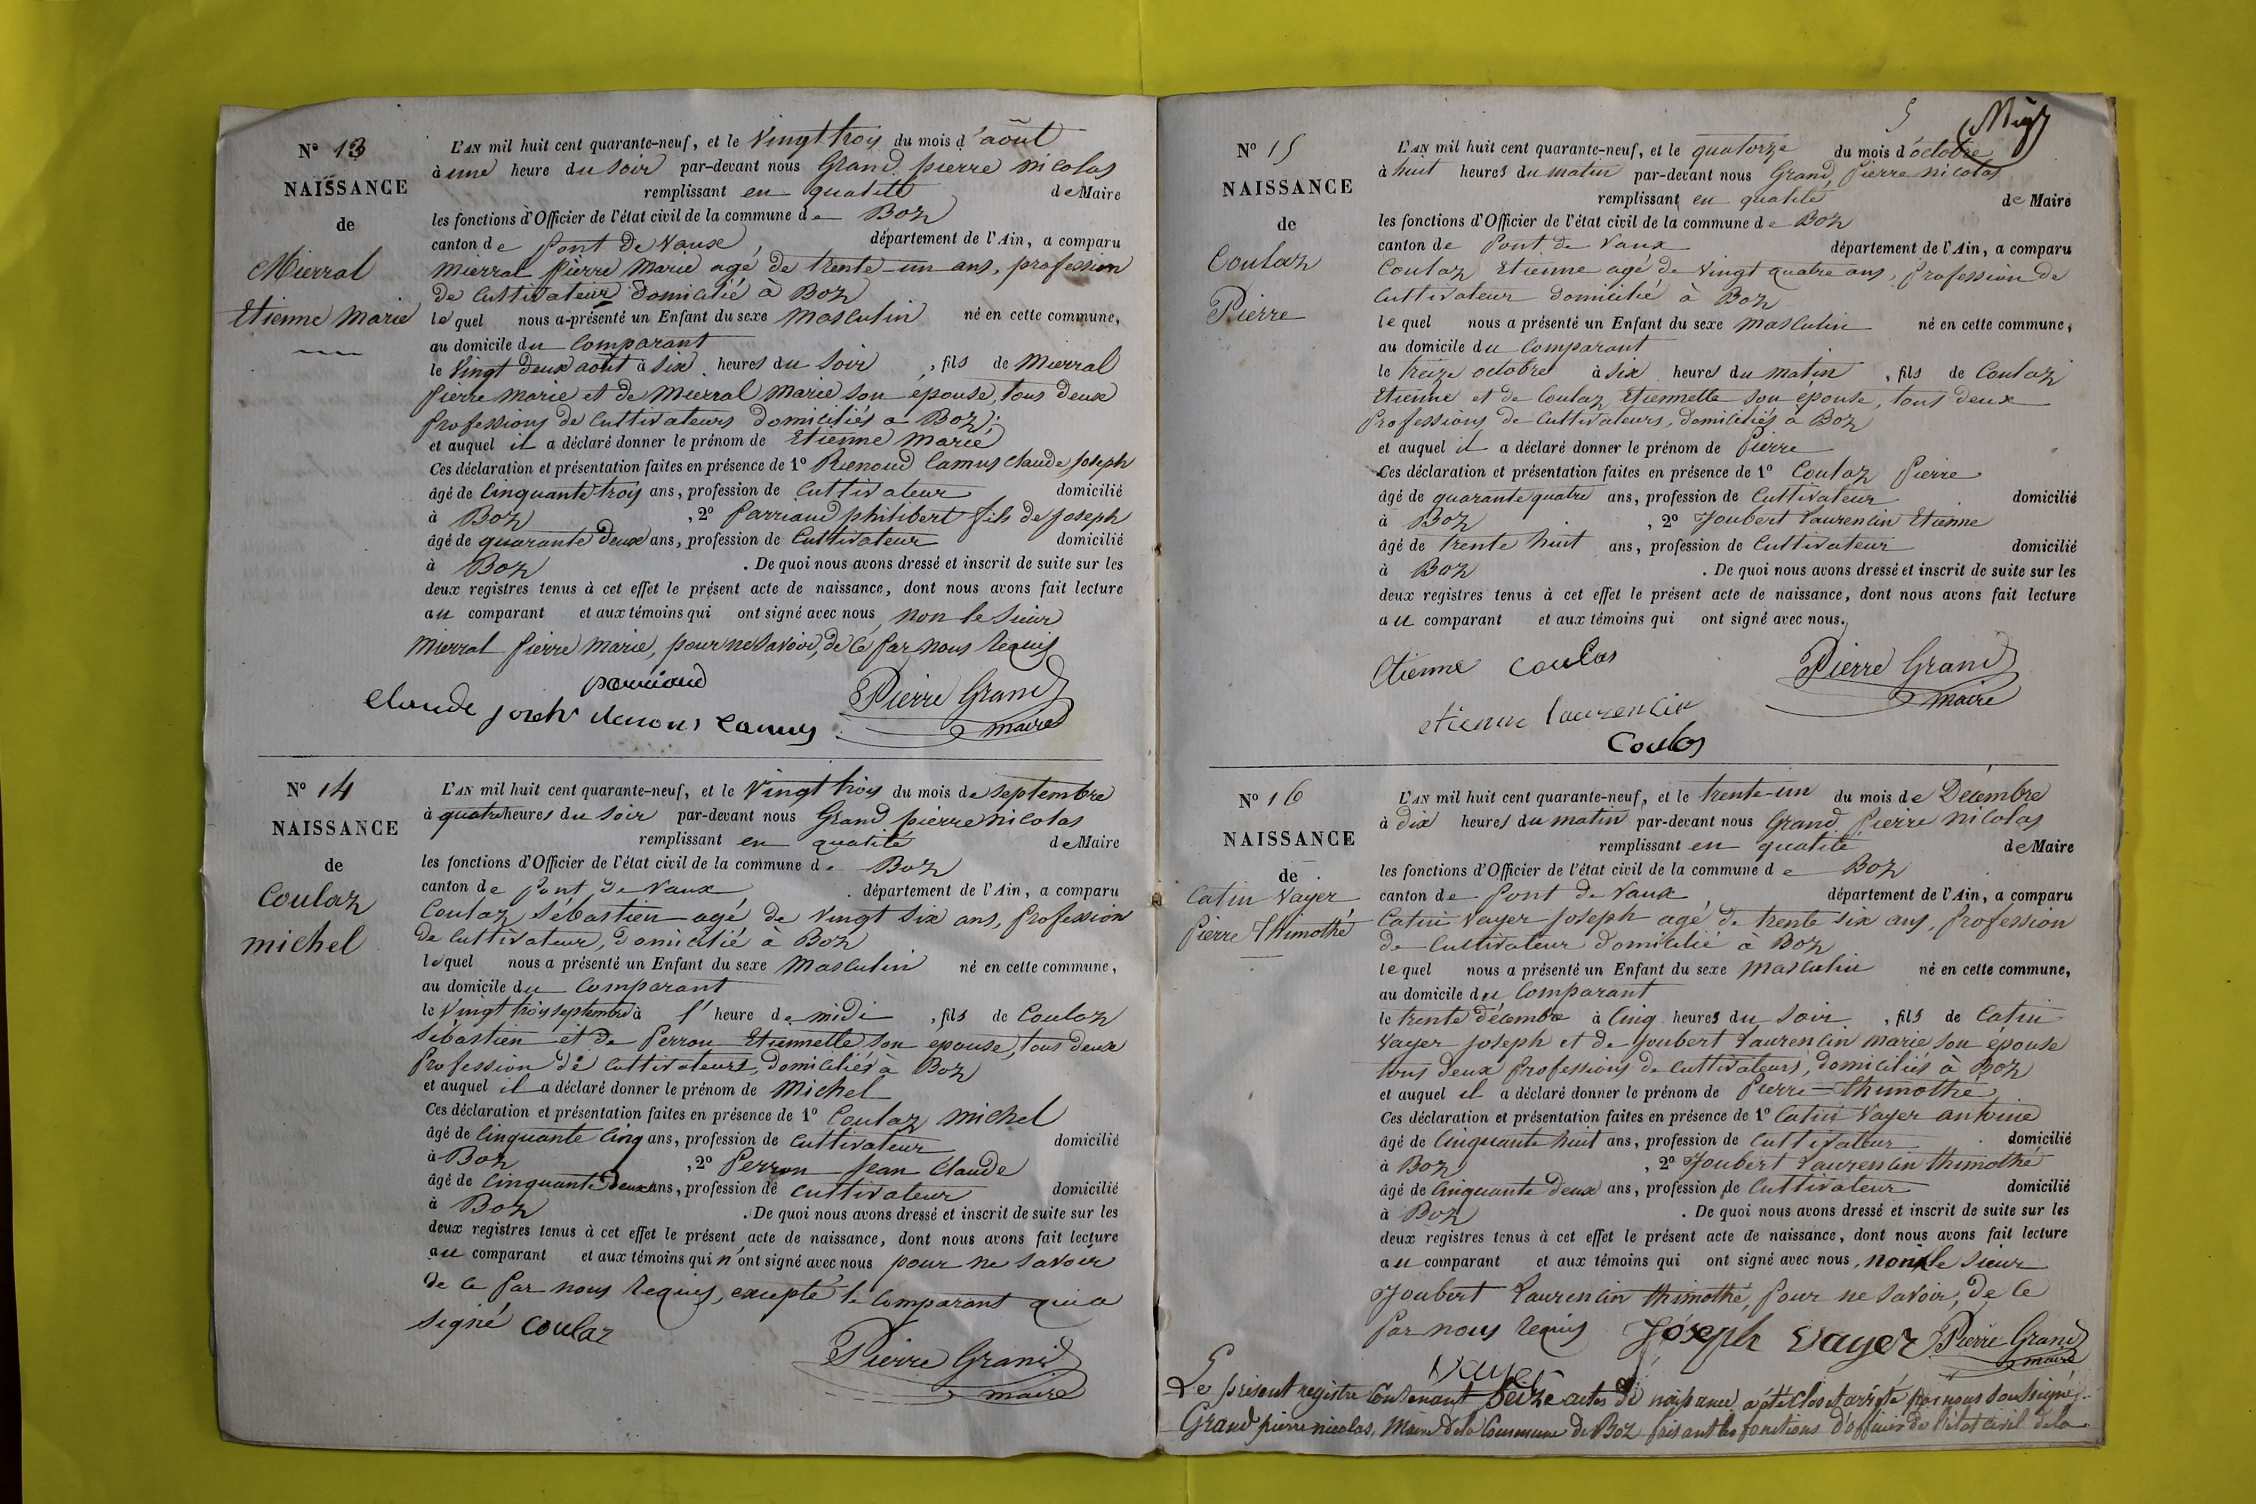 N° 13
NAISSANCE
de
Mierral
Etienne Marie
L'AN mil huit cent quarante-neuf, et le Vingt trois du mois d'août
à une heure du soir par-devant nous Grand pierre nicolas
remplissant en qualité de Maire
les fonctions d'Officier de l'état civil de la commune de Boz
canton de Pont de Vaux département de l'Ain, a comparu
Mierral Pierre Marie agé de trente-un ans, profession
de Cultivateur domicilié à Boz
lequel nous a présenté un Enfant du sexe Masculin né en cette commune,
au domicile du Comparant
le Vingt deux août à six heures du Soir, fils de Mierral
pierre marie et de Mierral Marie son épouse, tous deux
professions de Cultivateurs domiciliés a Boz;
et auquel il a déclaré donner le prénom de Etienne Marie
Ces déclaration et présentation faites en présence de 1° Renoud Camus Claude Joseph
âgé de Cinquante trois ans, profession de Cultivateur domicilié
à Boz, 2° Parriaud philibert fils de Joseph
âgé de quarante deux ans, profession de Cultivateur domicilié
à Boz. De quoi nous avons dressé et inscrit de suite sur les
deux registres tenus à cet effet le présent acte de naissance, dont nous avons fait lecture
au comparant et aux témoins qui ont signé avec nous, non le Sieur
Mierral pierre Marie, pour ne savoir, de ce par nous requis
parriaud
Claude joseph Renoud Camus Pierre Grand
maire
N° 14
NAISSANCE
de
Coulaz
michel
L'AN mil huit cent quarante-neuf, et le Vingt trois du mois de septembre
à quatre heures du soir par-devant nous Grand pierre nicolas
remplissant en qualité de Maire
les fonctions d'Officier de l'état civil de la commune de Boz
canton de Pont de Vaux département de l'Ain, a comparu
Coulaz Sébastien agé de Vingt Six ans, profession
de Cultivateur, domicilié à Boz
lequel nous a présenté un Enfant du sexe Masculin né en cette commune,
au domicile du Comparant
le Vingt trois septembre à l'heure de midi, fils de Coulaz
Sébastien et de Perron Etiennette son épouse, tous deux
Profession de Cultivateurs, domiciliés à Boz
et auquel il a déclaré donner le prénom de Michel
Ces déclaration et présentation faites en présence de 1° Coulaz Michel
âgé de Cinquante Cinq ans, profession de Cultivateur domicilié
à Boz, 2° Perron Jean Claude
âgé de Cinquante deux ans, profession de Cultivateur domicilié
à Boz. De quoi nous avons dressé et inscrit de suite sur les
deux registres tenus à cet effet le présent acte de naissance, dont nous avons fait lecture
au comparant et aux témoins qui n'ont signé avec nous pour ne savoir
de ce par nous requis, excepté le Comparant qui a
signé Coulaz
Pierre Grand
maire
5
N° 15
NAISSANCE
de
Coulaz
Pierre
L'AN mil huit cent quarante-neuf, et le quatorze du mois d'octobre
à huit heures du matin par-devant nous Grand Pierre nicolas
remplissant en qualité de Maire
les fonctions d'Officier de l'état civil de la commune de Boz
canton de Pont de Vaux département de l'Ain, a comparu
Coulaz Etienne agé de Vingt quatre ans, Profession de
Cultivateur domicilié à Boz
lequel nous a présenté un Enfant du sexe Masculin né en cette commune,
au domicile du Comparant
le treize octobre à six heures du matin, fils de Coulaz
Etienne et de Coulaz Etiennette son épouse, tous deux
Professions de Cultivateurs, domiciliés a Boz
et auquel il a déclaré donner le prénom de Pierre
Ces déclaration et présentation faites en présence de 1° Coulaz Pierre
âgé de quarante quatre ans, profession de Cultivateur domicilié
à Boz, 2° Joubert Laurencin Etienne
âgé de trente huit ans, profession de Cultivateur domicilié
à Boz. De quoi nous avons dressé et inscrit de suite sur les
deux registres tenus à cet effet le présent acte de naissance, dont nous avons fait lecture
au comparant et aux témoins qui ont signé avec nous.
Etienne Coulas Pierre Grand
maire
etienne laurencin
Coulos
N° 16
NAISSANCE
de
Catin Vayer
Pierre Thimothé
L'AN mil huit cent quarante-neuf, et le trente-un du mois de Décembre
à dix heures du matin par-devant nous Grand Pierre nicolas
remplissant en qualité de Maire
les fonctions d'Officier de l'état civil de la commune de Boz
canton de Pont de Vaux département de l'Ain, a comparu
Catin Vayer Joseph agé de trente six ans, profession
de Cultivateur domicilié à Boz
lequel nous a présenté un Enfant du sexe Masculin né en cette commune,
au domicile du Comparant
le trente décembre à Cinq heures du Soir, fils de Catin
Vayer Joseph et de Joubert Laurencin Marie son épouse
tous deux professions de Cultivateurs, domiciliés à Boz
et auquel il a déclaré donner le prénom de Pierre-thimothé
Ces déclaration et présentation faites en présence de 1° Catin Vayer antoine
âgé de Cinquante huit ans, profession de Cultivateur domicilié
à Boz, 2° Joubert Laurencin thimothé
âgé de Cinquante deux ans, profession de Cultivateur domicilié
à Boz. De quoi nous avons dressé et inscrit de suite sur les
deux registres tenus à cet effet le présent acte de naissance, dont nous avons fait lecture
au comparant et aux témoins qui ont signé avec nous, non le Sieur
Joubert Laurencin thimothé, pour ne savoir, de ce
par nous requis Joseph Vayer Pierre Grand
maire
Vayer
Le présent registre Contenant Seize actes de naissance a été clos et arrêté par nous soussigné
Grand pierre nicolas, Maire de la Commune de Boz faisant les fonctions d'officier de l'état civil de la